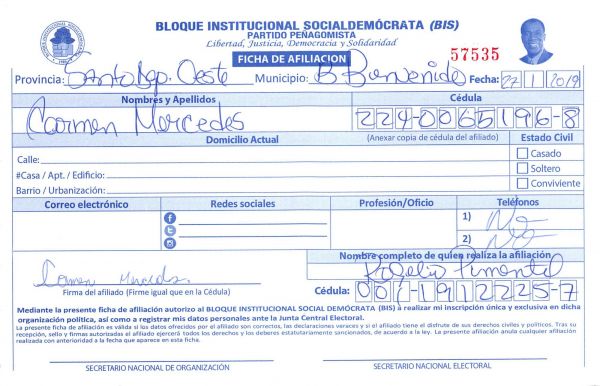 BLOQUE INSTITUCIONAL SOCIALDEMÓCRATA (BIS)
PARTIDO PEÑAGOMISTA
Libertad, Justicia, Democracia y Solidaridad
FICHA DE AFILIACION
57535
Provincia: Santo Dgo. Oeste Municipio: B Bienvenido Fecha: 22/1/2019
Nombres y Apellidos Cédula
Carmen Mercedes 224-0065196-8
Domicilio Actual (Anexar copia de cédula del afiliado) Estado Civil
Calle: Casado
#Casa / Apt. / Edificio: Soltero
Barrio / Urbanización: Conviviente
Correo electrónico Redes sociales Profesión/Oficio Teléfonos
1) No
2) No
Nombre completo de quien realiza la afiliación
Carmen Mercedes Rogelio Pimentel
Firma del afiliado (Firme igual que en la Cédula) Cédula: 001-1912225-7
Mediante la presente ficha de afiliación autorizo al BLOQUE INSTITUCIONAL SOCIAL DEMÓCRATA (BIS) a realizar mi inscripción única y exclusiva en dicha
organización política, así como a registrar mis datos personales ante la Junta Central Electoral.
La presente ficha de afiliación es válida si los datos ofrecidos por el afiliado son correctos, las declaraciones veraces y si el afiliado tiene el disfrute de sus derechos civiles y políticos. Tras su
recepción, sello y firmas autorizadas el afiliado ejercerá todos los derechos y los deberes estatutariamente sancionados, de acuerdo a la ley. La presente afiliación anula cualquier afiliación
realizada con anterioridad a la fecha que aparece en esta ficha.
SECRETARIO NACIONAL DE ORGANIZACIÓN SECRETARIO NACIONAL ELECTORAL